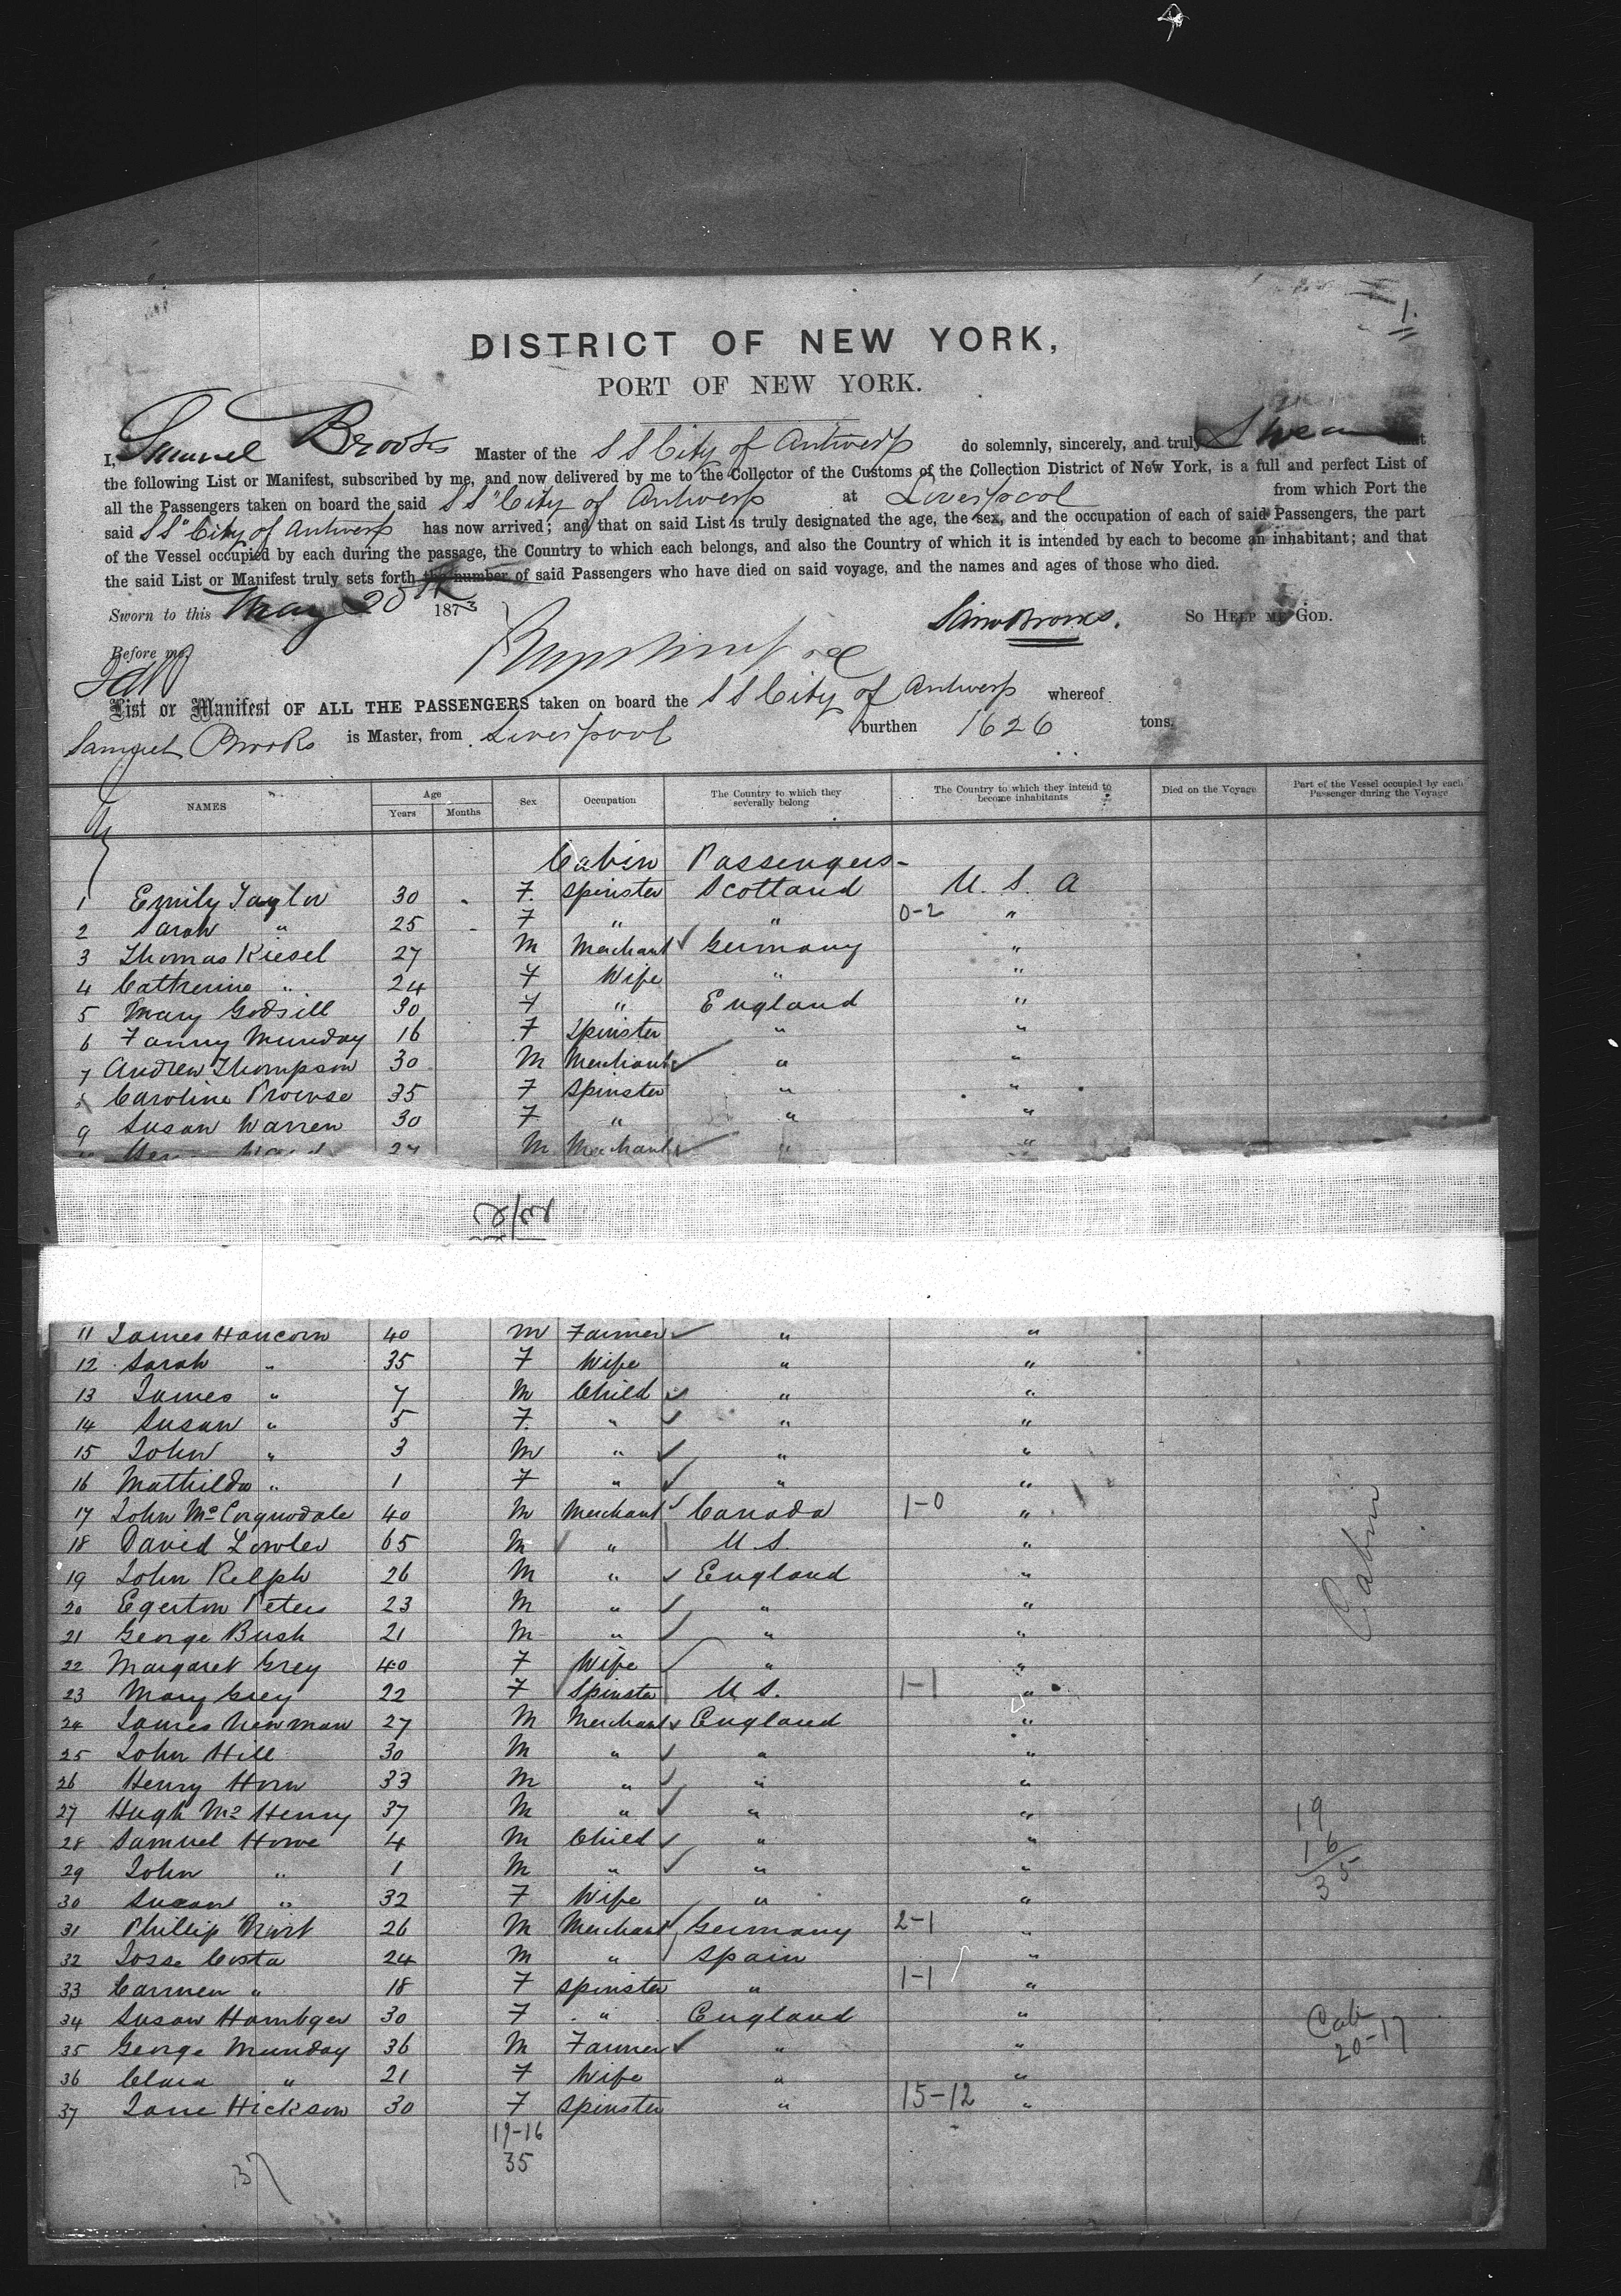 1.
DISTRICT OF NEW YORK,
PORT OF NEW YORK.
I, Samuel Brooks Master of the S S City of Antwerp do solemnly, sincerely, and truly Swear that
the following List or Manifest, subscribed by me, and now delivered by me to the Collector of the Customs of the Collection District of New York, is a full and perfect List of
all the Passengers taken on board the said S S "City of Antwerp at Liverpool from which Port the
said S S "City of Antwerp has now arrived; and that on said List is truly designated the age, the sex, and the occupation of each of said Passengers, the part
of the Vessel occupied by each during the passage, the Country to which each belongs, and also the Country of which it is intended by each to become an inhabitant; and that
the said List or Manifest truly sets forth the number of said Passengers who have died on said voyage, and the names and ages of those who died.
Sworn to this May 20th 1873 Saml Brooks. So HELP ME GOD.
Before me,
List or Manifest OF ALL THE PASSENGERS taken on board the S S City of Antwerp whereof
Samuel Brooks is Master, from Liverpool burthen 1626 tons.
NAMES Age Years Months Sex Occupation The Country to which they severally belong The Country to which they intend to become inhabitants Died on the Voyage Part of the Vessel occupied by each Passenger during the Voyage
Cabin Passengers-
1 Emily Taylor 30 F. Spinster Scotland U. S. A
2 Sarah " 25 F " " 0-2 "
3 Thomas Kiesel 27 M Merchant Germany "
4 Catherine " 24 F Wife " "
5 Mary Godsill 30 F " England "
6 Fanny Munday 16 F Spinster " "
7 Andrew Thompson 30 M Merchant " "
8 Caroline Prowse 35 F Spinster " "
9 Susan Warren 30 F " " "
27 M Merchant " "
11 James Hancorn 40 M Farmer " "
12 Sarah " 35 F Wife " "
13 James " 7 M Child " "
14 Susan " 5 F. " " "
15 John " 3 M " " "
16 Mathilda " 1 F " " "
17 John McCorquodale 40 M Merchant Canada 1-0 "
18 David Lowler 65 M " U.S. "
19 John Relph 26 M " England "
20 Egerton Peters 23 M " " "
21 George Bush 21 M " " "
22 Margaret Grey 40 F Wife " "
23 Mary Grey 22 F Spinster U S. 1-1 "
24 James Newman 27 M Merchant England "
25 John Hill 30 M " " "
26 Henry Horn 33 M " " "
27 Hugh Mc Henry 37 M " " "
28 Samuel Howe 4 M Child " "
29 John " 1 M " " "
30 Susan " 32 F Wife " "
31 Phillip 26 M Merchant Germany 2-1 "
32 Josse Costa 24 M " Spain "
33 Carmen " 18 F Spinster " 1-1 "
34 Susan Hamtger 30 F " England "
35 George Munday 36 M Farmer " "
36 Clara " 21 F Wife " "
37 Jane Hickson 30 F Spinster " 15-12 "
Cabin
19
16
35
Cab
20-17
19-16
35
37